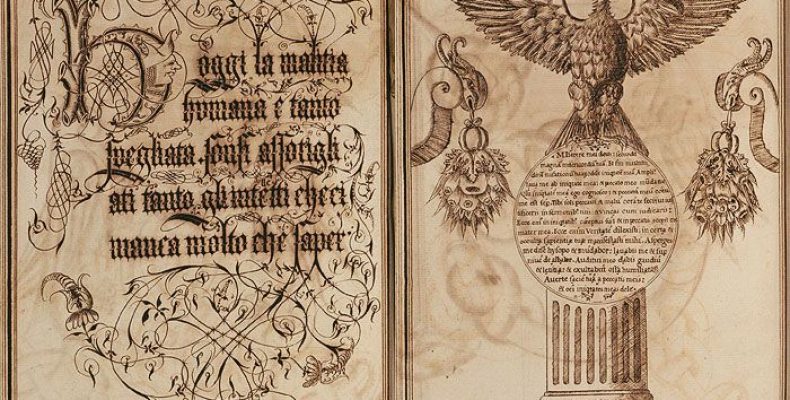 Hoggi la malitia
humana e tanto
svegliata. sonsi assotigli
ati tanto. gli intetti checi
manca molto che saper
MIserere mei deus: secundū
magnā misericordiā tuā. Et sm multitu
dinē miserationū dele iniquitatē meā Ampli
lava me ab iniquitate mea: & a peccato meo mūda
iniquitatē meā ego cognosco: & peccatū meū contra
me est sēp. Tibi soli peccavi & malū corā te feci ut ius
tificeris in sermonib' tuis & vincas cum iudicaris:
Ecce enī in iniquitatib' cōceptus sum & in peccatis cōcepit me
mater mea. Ecce enim veritatē dilexisti: in certa &
occulta sapientiæ tuæ manifestasti mihi. Asperges
me dñe hysopo & mūdabor: lavabis me & sup
nivē de albabor. Auditui meo dabis gaudiū
& letitiā: & exultabūt ossa humiliata.
Averte faciē tuā a peccatis meis:
& oēs iniquitates meas dele